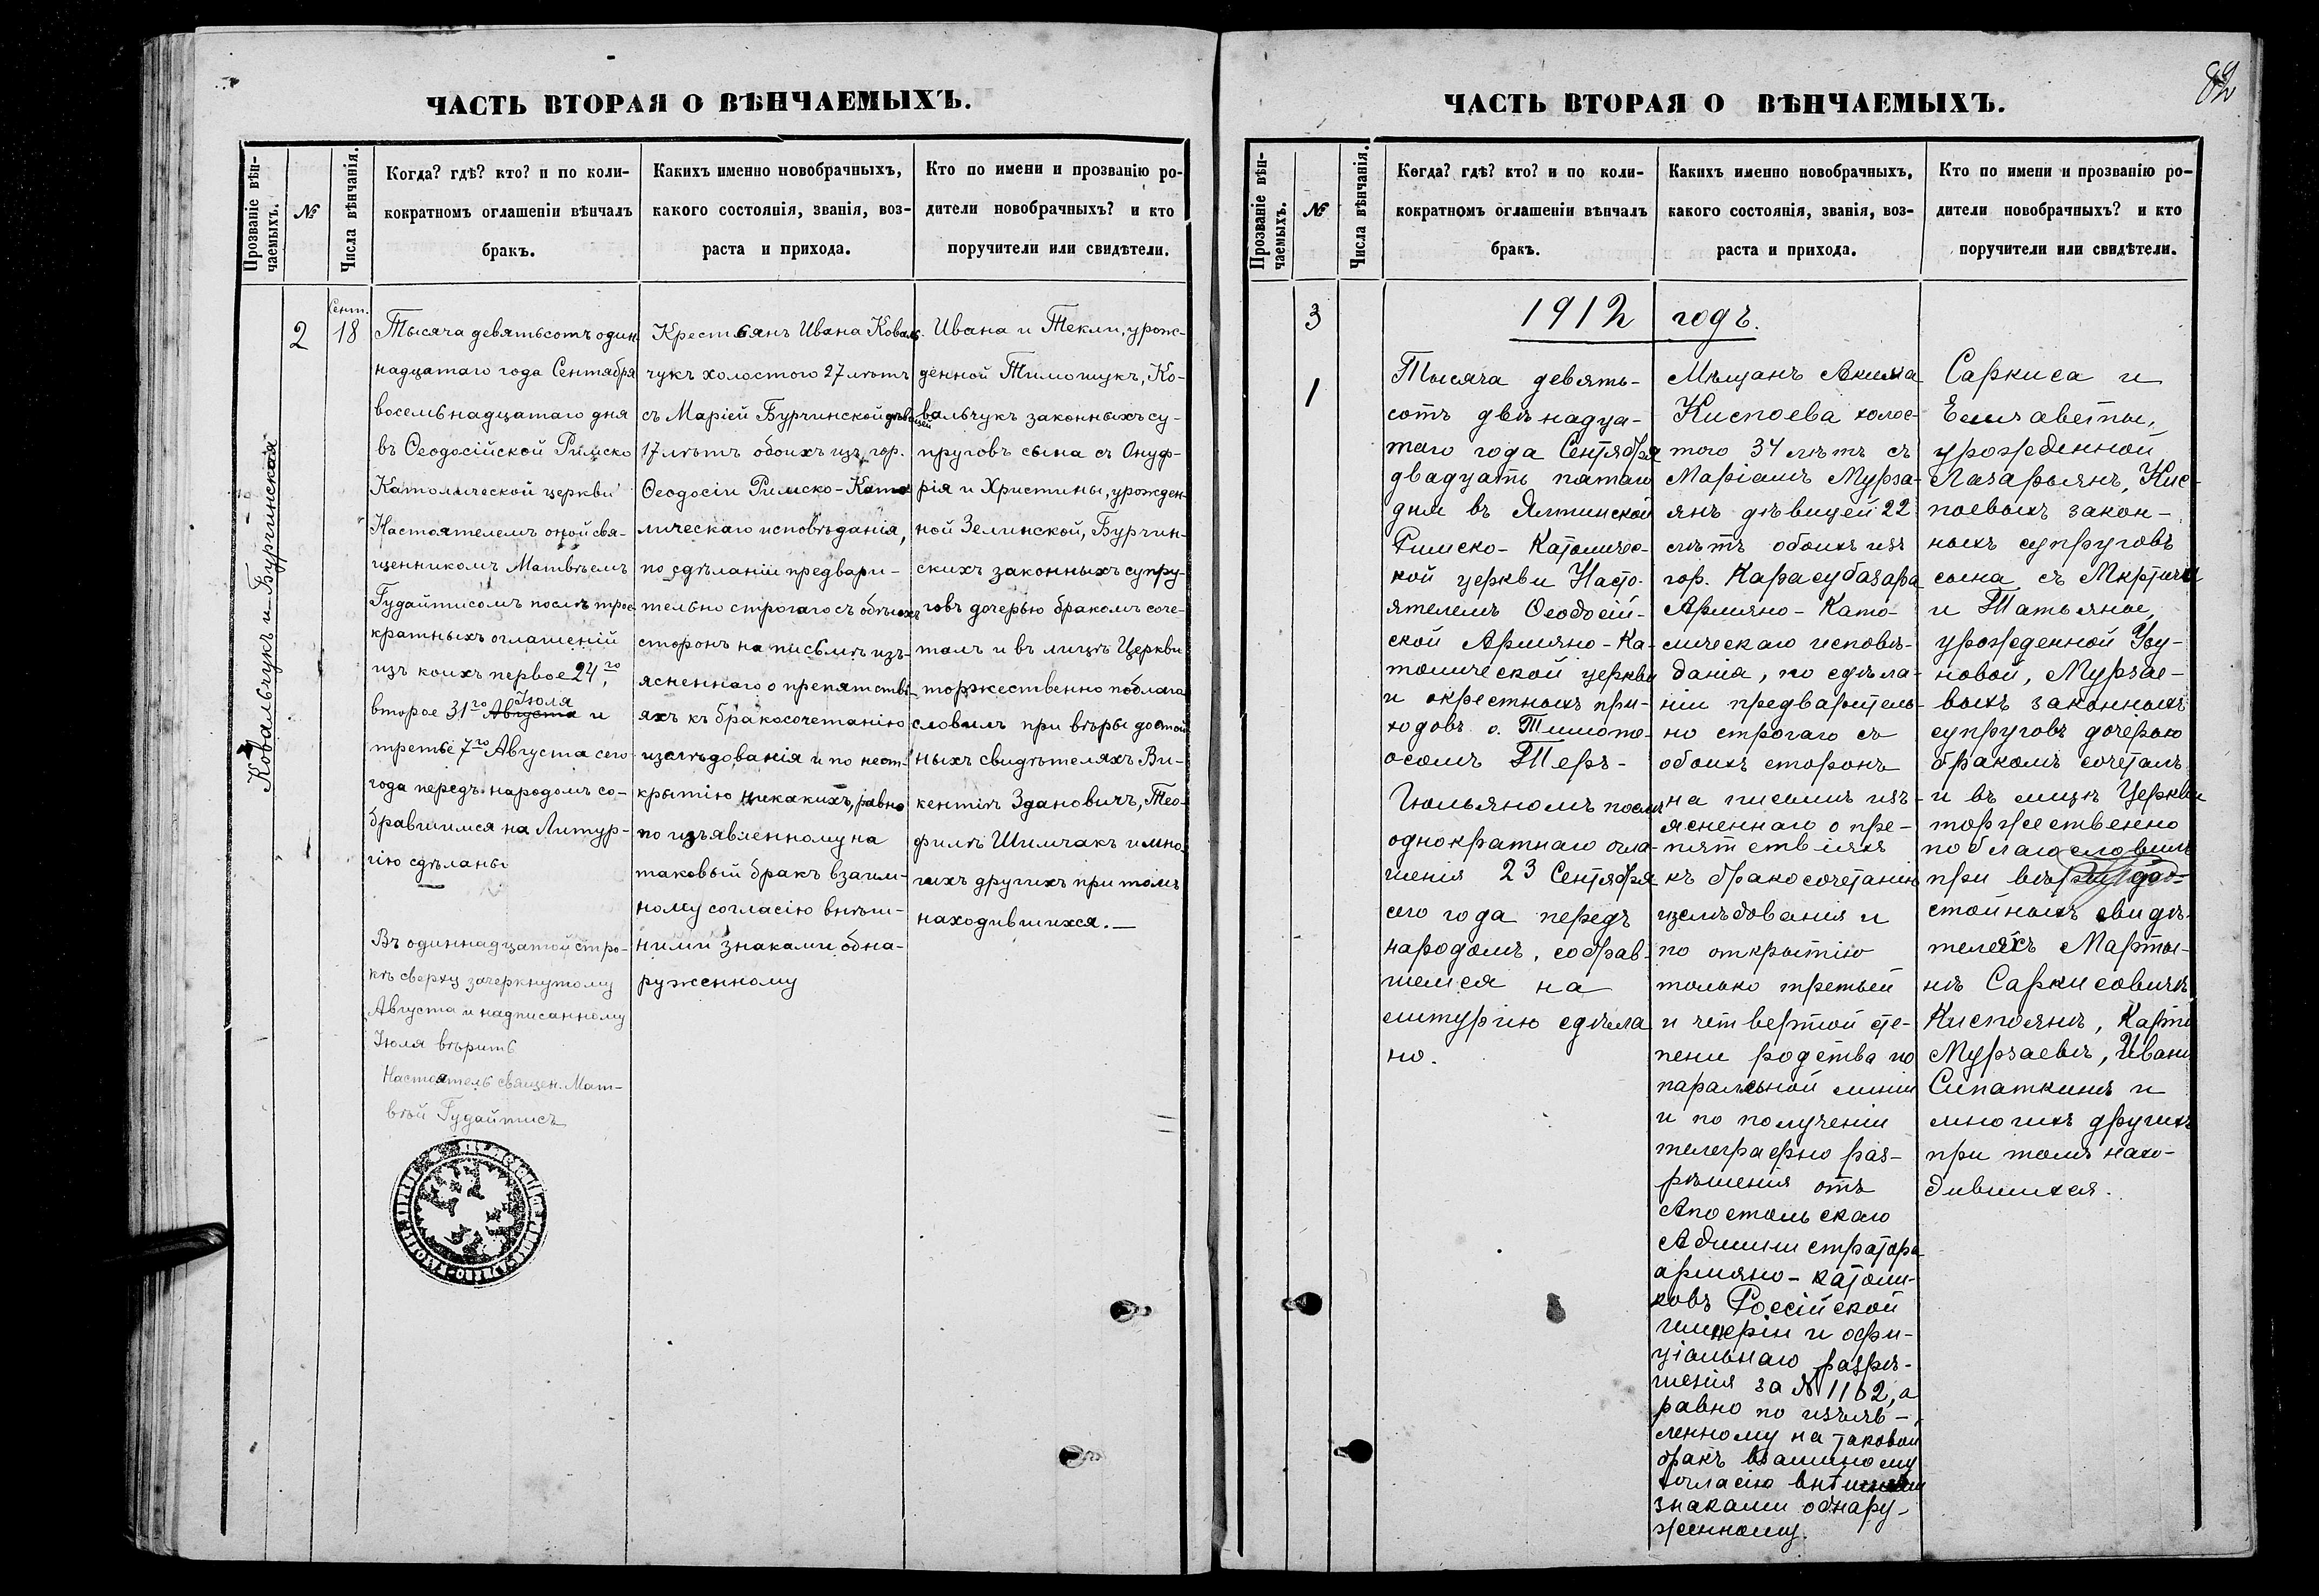 82
ЧАСТЬ ВТОРАЯ О ВѢНЧАЕМЫХЪ.
Прозваніе вѣн-
чаемыхъ.
№
Числа вѣнчанія.
Когда? гдѣ? кто? и по коли-
кократномъ оглашеніи вѣнчалъ
бракъ.
Какихъ именно новобрачныхъ,
какого состоянія, званія, воз-
раста и прихода.
Кто по имени и прозванію ро-
дители новобрачныхъ? и кто
поручители или свидѣтели.
Ковальчукъ и Бурчинская
2
Сент.
18
Тысяча девятьсотъ один
надцатаго года Сентября
восемьнадцатаго дня
въ Ѳеодосійской Римско
Католической церкви
Настоятелемъ оной свя-
щенникомъ Матвѣемъ
Гудайтисомъ послѣ трое
кратныхъ оглашеній
изъ коихъ первое 24го,
Іюля
второе 31го Августа и
третье 7го Августа сего
года передъ народомъ со-
бравшимся на Литур-
гію сдѣланы
Въ одиннадцатой стро-
кѣ сверху зачеркнутому
Августа и надписанному
Іюля вѣрить
Настоятель священ. Мат-
вѣй Гудайтисъ
Крестьянъ Ивана Коваль-
чукъ холостого 27 лѣтъ
съ Маріей Бурчинской дѣвицей
17 лѣтъ обоихъ изъ гор.
Ѳеодосіи Римско-Като
лическаго исповѣданія,
по сдѣланіи предвари-
тельно строгаго съ обѣихъ
сторонъ на письмѣ изъ-
ясненнаго о препятстві-
яхъ къ бракосочетанію
изслѣдованія и по неот-
крытію никакихъ, равно
по изъявленному на
таковый бракъ взаим-
ному согласію внѣш-
ними знаками обна-
руженному
Ивана и Текли, урож-
денной Тимощукъ, Ко-
вальчукъ законныхъ су-
пруговъ сына съ Онуф-
рія и Христины, урожден-
ной Зелинской, Бурчин-
скихъ законныхъ супру-
говъ дочерью бракомъ соче-
талъ и въ лицѣ Церкви
торжественно поблаго
словилъ при вѣры достой
ныхъ свидѣтеляхъ Ви-
кентіѣ Здановичъ, Тео-
филѣ Шимчакъ и мно-
гихъ другихъ при томъ
находившихся.—
ЧАСТЬ ВТОРАЯ О ВѢНЧАЕМЫХЪ.
Прозваніе вѣн-
чаемыхъ.
№
Числа вѣнчанія.
Когда? гдѣ? кто? и по коли-
кократномъ оглашеніи вѣнчалъ
бракъ.
Какихъ именно новобрачныхъ,
какого состоянія, званія, воз-
раста и прихода.
Кто по имени и прозванію ро-
дители новобрачныхъ? и кто
поручители или свидѣтели.
3
1912 годъ.
1
Тысяча девять-
сотъ двѣнадца-
таго года Сентября
двадцать пятаго
дня въ Ялтинской
Римско-Католичес-
кой церкви Насто-
ятелемъ Ѳеодосій-
ской Армяно-Ка-
толической церкви
и окрестныхъ при-
ходовъ о. Тимоте-
осомъ Теръ-
Гюльяномъ послѣ
однократнаго огла-
шенія 23 Сентября
сего года передъ
народомъ, собрав-
шемся на
литургію сдѣла
но.
Мѣщанъ Акима
Киспоева холос-
того 34 лѣтъ съ
Маріамъ Мурза-
янъ дѣвицей 22
лѣтъ обоихъ изъ
гор. Карасубазара
Армяно-Като-
лическаго исповѣ-
данія, по сдѣла-
ніи предваритель-
но строгаго съ
обоихъ сторонъ
на письмѣ изъ-
ясненнаго о пре-
пятствіяхъ
къ бракосочетанію
изслѣдованія и
по открытію
только третьей
и четвертой сте-
пени родства по
паралельной линіи
и по полученіи
телеграфно раз-
рѣшенія отъ
Апостольскаго
Администратора
армяно-католи-
ковъ Россійской
имперіи и офи-
ціальнаго разрѣ-
шенія за №1102, а
равно по изъяв-
ленному на таковый
бракъ взаимному
согласію внѣшними
знаками обнару-
женному.
Саркиса и
Елизаветы,
урожденной
Лазарьянъ, Кис-
поевыхъ закон-
ныхъ супруговъ
сына съ Мкртича
и Татьяны,
урожденной Узу-
новой, Мурзае-
выхъ законныхъ
супруговъ дочерью
бракомъ сочеталъ
и въ лицѣ Церкви
торжественно
поблагословилъ
при вѣры до-
стойныхъ свидѣ-
теляхъ Марты-
нѣ Саркисовичѣ
Киспоянъ,
Мурзаевъ, Иванѣ
Сипаткинъ и
многихъ другихъ
при томъ нахо-
дившихся.